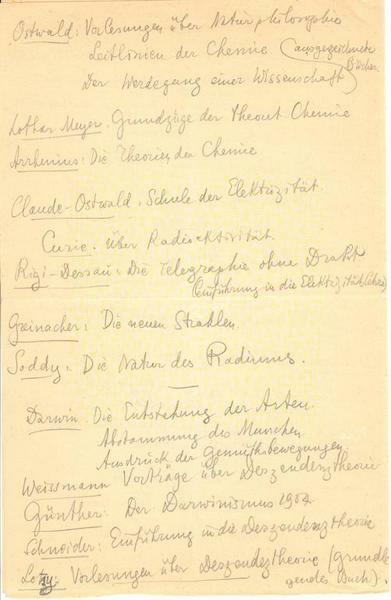 Ostwald: Vorlesungen über Naturphilosophie
Leitlinien der Chemie (ausgezeichnete
Der Werdegang einer Wissenschaft) Bücher
Lothar Meyer. Grundzüge der Theoret Chemie
Arrhenius: Die Theorien der Chemie
Claude-Ostwald. Schule der Elektrizität.
Curie. über Radioaktivität.
Rigi-Dessau: Die Telegraphie ohne Draht
Einführung in die Elektrizität
Greinacher: Die neuen Strahlen.
Soddy: Die Natur des Radiums.
Darwin. Die Entstehung der Arten.
Abstammung des Menschen.
Ausdruck der Gemüthsbewegungen.
Weissmann Vorträge über Deszendenztheorie
Günther: Der Darwinismus 1904.
Schneider: Einführung in die Deszendenztheorie
Lotsy: Vorlesungen über Deszendeztheorie (Grundle
gendes Buch).